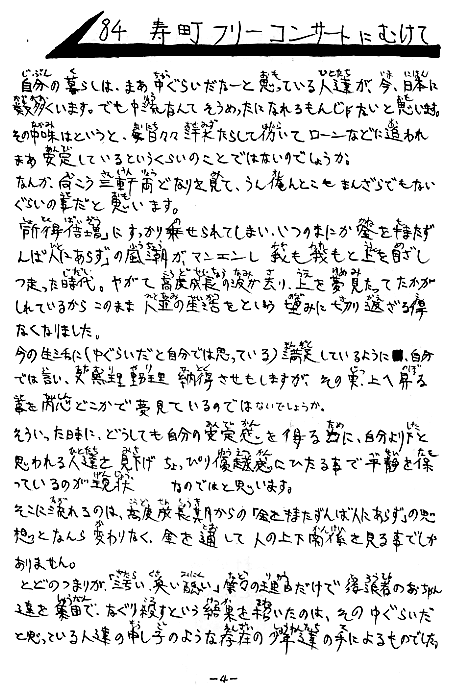 84 寿町フリーコンサートにむけて
自分の暮らしは、まあ、中ぐらいだなーと思っている人達が、今、日本に
数多くいます。でも中流なんてそうめったになれるもんじゃないと思います。
その中味はというと、毎日々々汗水たらして仂いてローンなどに追われ
まあ安定しているというくらいのことではないのでしょうか。
なんか、向こう三軒両どなりを見て、うん俺んとこもまんざらでもない
ぐらいの事だと思います。
「所得倍増」にすっかり乗せられてしまい、いつのまにか「金を持たず
んば人にあらず」の風潮がマンエンし我も我もと上を目ざし
つっ走った時代。ヤガて高度成長の波が去り、上を夢見たってたかが
しれているからこのまま人並の生活をという望みに切り返ざる得
なくなりました。
今の生活に(中ぐらいだと自分では思っている)満足しているように、自分
では言い、又無理矢理納得させもしますが、その実、上へ昇る
事を内心どこかで夢見ているのではないでしょうか。
そういった日本に、どうしても自分の安定感を得る為に、自分より下と
思われる人達を見下げちょっぴり優越感にひたる事で平静を保
っているのが現状なのではと思います。
そこに流れるのは、高度成長期からの「金を持たずんば人にあらず」の思
想となんら変わりなく、金を通して人の上下関係を見る事でしか
ありません。
とどのつまりが、「汚い、臭い、醜い」等々の理由だけで浮浪者のおっちゃん
達を集団で、なぐり殺すという結果を招いたのは、その中ぐらいだ
と思っている人達の申し子のような存在の少年達の手によるものでした。
-4-